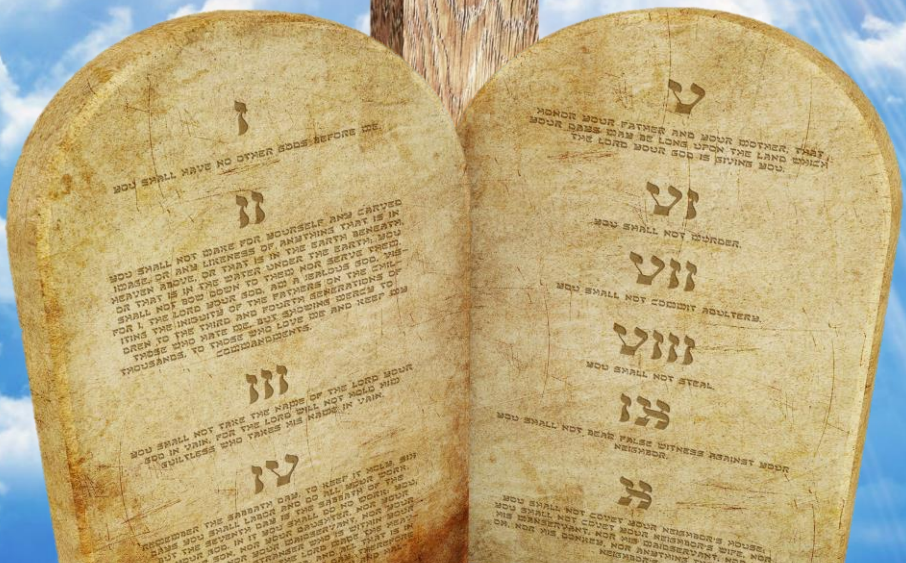 I
YOU SHALL HAVE NO OTHER GODS BEFORE ME.
II
YOU SHALL NOT MAKE FOR YOURSELF ANY CARVED
IMAGE, OR ANY LIKENESS OF ANYTHING THAT IS IN
HEAVEN ABOVE, OR THAT IS IN THE EARTH BENEATH,
OR THAT IS IN THE WATER UNDER THE EARTH; YOU
SHALL NOT BOW DOWN TO THEM NOR SERVE THEM.
FOR I, THE LORD YOUR GOD, AM A JEALOUS GOD, VIS-
ITING THE INIQUITY OF THE FATHERS ON THE CHIL-
DREN TO THE THIRD AND FOURTH GENERATIONS OF
THOSE WHO HATE ME, BUT SHOWING MERCY TO
THOUSANDS, TO THOSE WHO LOVE ME AND KEEP MY
COMMANDMENTS.
III
YOU SHALL NOT TAKE THE NAME OF THE LORD YOUR
GOD IN VAIN, FOR THE LORD WILL NOT HOLD HIM
GUILTLESS WHO TAKES HIS NAME IN VAIN.
IV
REMEMBER THE SABBATH DAY, TO KEEP IT HOLY. SIX
DAYS YOU SHALL LABOR AND DO ALL YOUR WORK,
BUT THE SEVENTH DAY IS THE SABBATH OF THE
GOD. IN IT YOU SHALL DO NO WORK: YOU,
SON, NOR YOUR DAUGHTER, NOR YOUR
V
HONOR YOUR FATHER AND YOUR MOTHER, THAT
YOUR DAYS MAY BE LONG UPON THE LAND WHICH
THE LORD YOUR GOD IS GIVING YOU.
VI
YOU SHALL NOT MURDER.
VII
YOU SHALL NOT COMMIT ADULTERY.
VIII
YOU SHALL NOT STEAL.
XI
YOU SHALL NOT BEAR FALSE WITNESS AGAINST YOUR
NEIGHBOR.
X
YOU SHALL NOT COVET YOUR NEIGHBOR'S HOUSE;
YOU SHALL NOT COVET YOUR NEIGHBOR'S WIFE, NOR
HIS MANSERVANT, NOR HIS MAIDSERVANT, NOR
NOR HIS DONKEY, NOR ANYTHING
NEIGHBOR'S